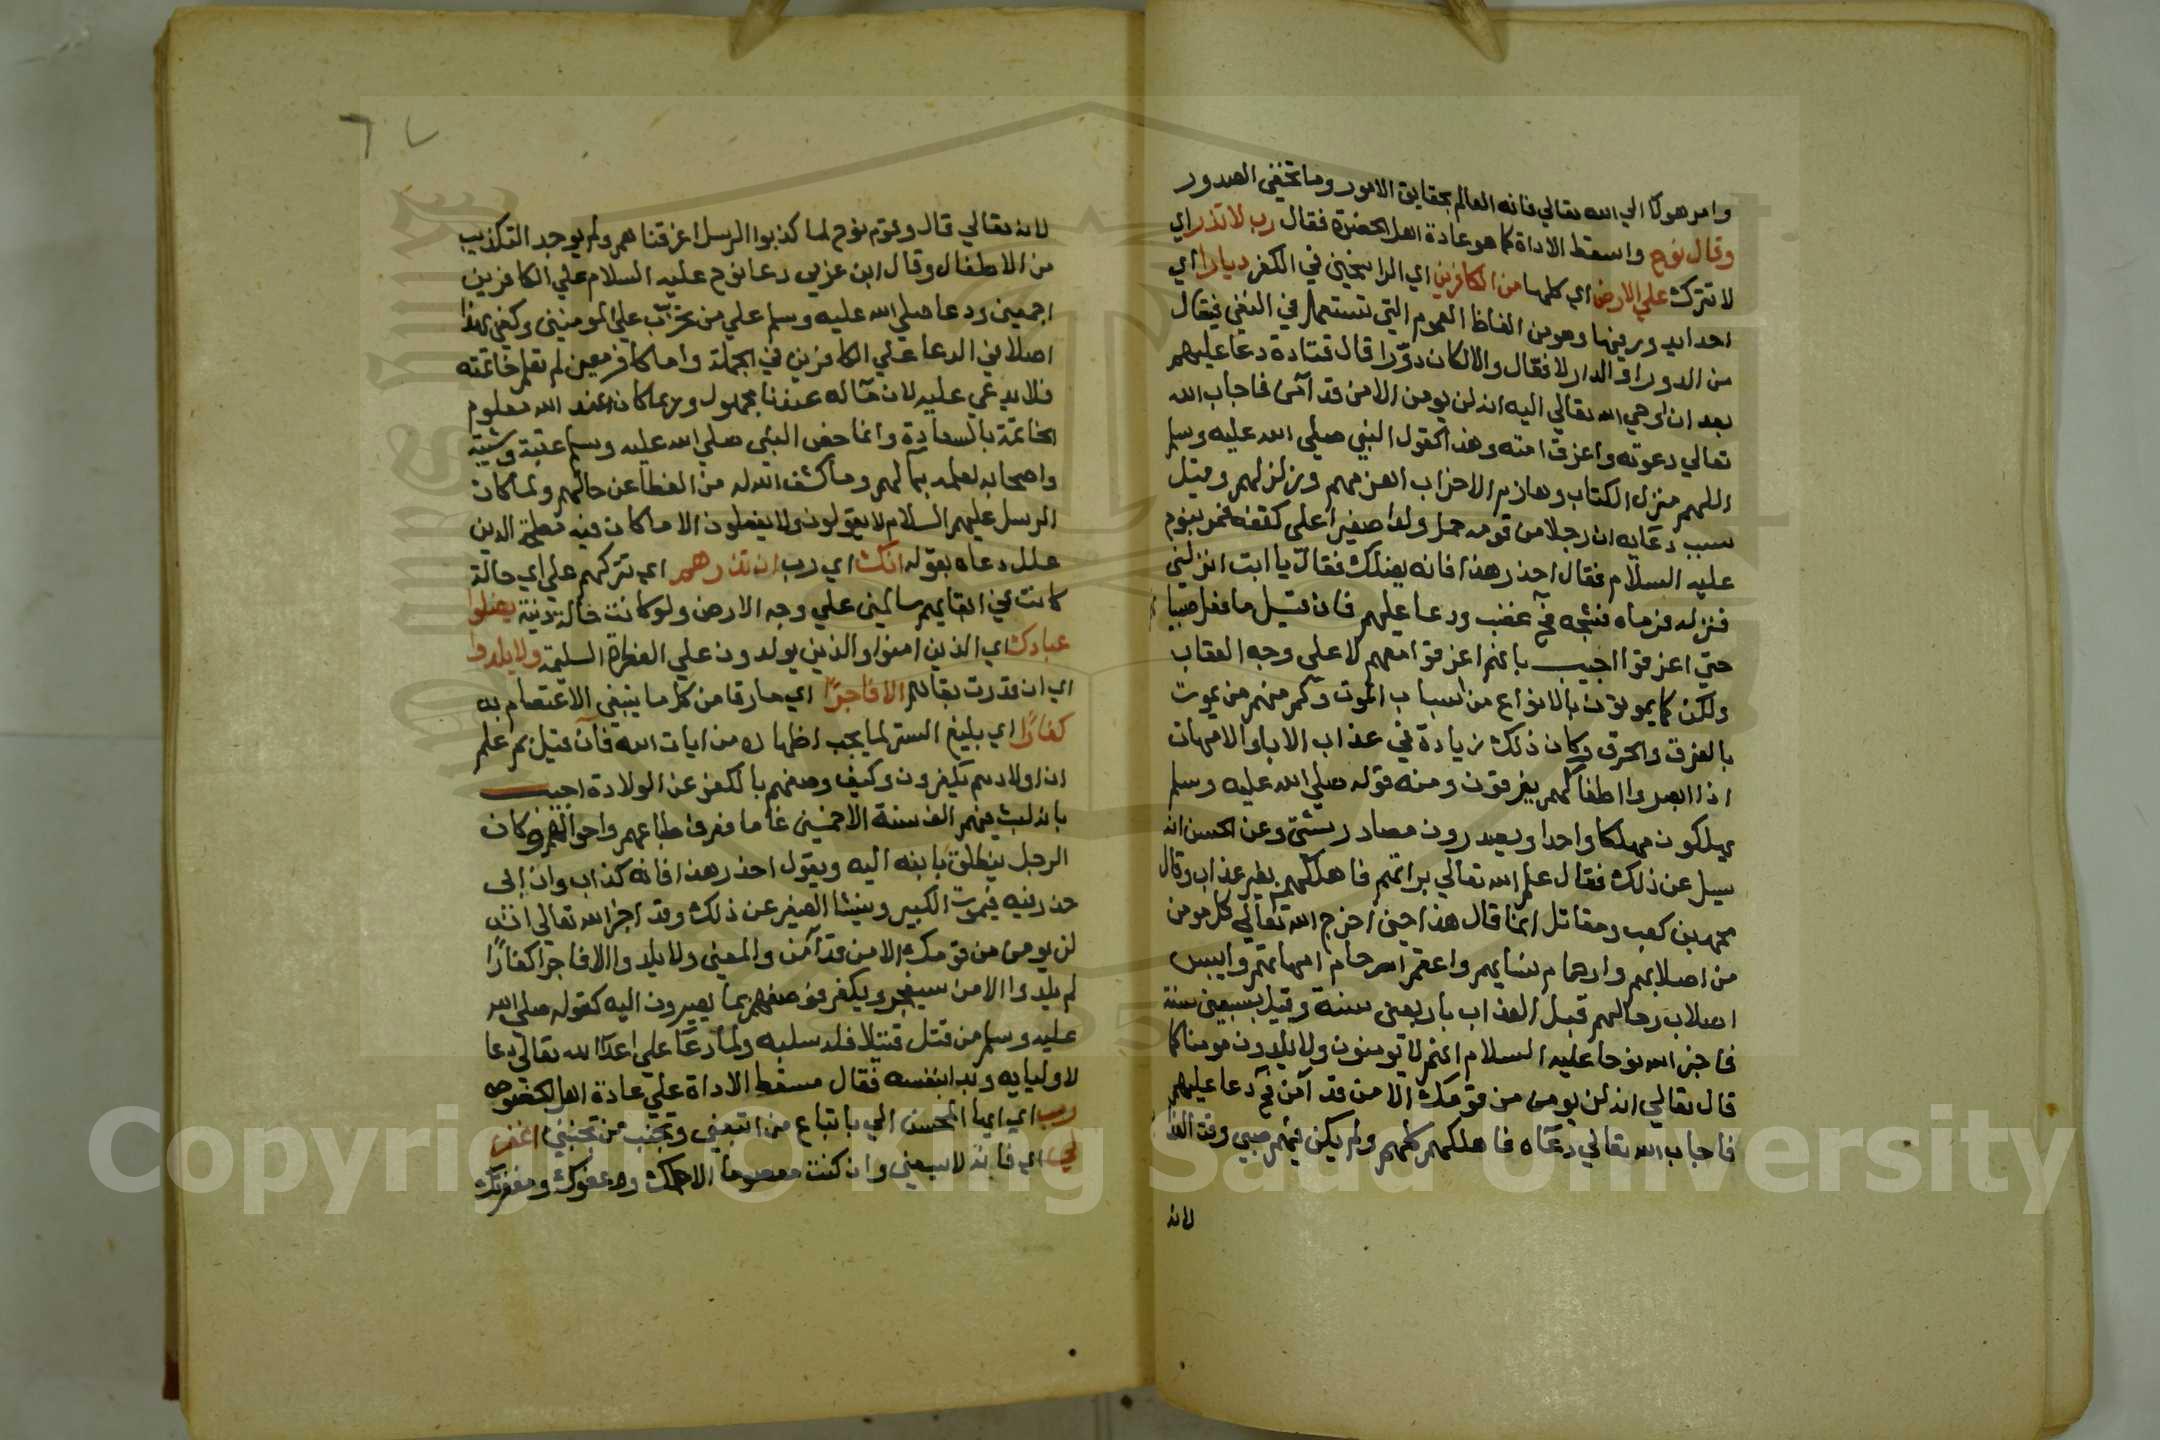 وامر هولا الي الله تعالي فانه العالم بحقايق الامور وما تخفي الصدور
وقال نوح واسقط الاداة كما هو عادة اهل الحضرة فقال رب لا تذر اي
لا تترك علي الارض اي كلها من الكافرين اي الراسخين في الكفر ديارا اي
احدا يدور فيها وهو من الفاظ العموم التي تستعمل في النفي فيقال
من الدور او الدار لا فعّال والا لكان دوّرا قال قتادة دعا عليهم
بعد ان اوحي الله تعالي اليه انه لن يومن الا من قد آمن فاجاب الله
تعالي دعوته واغرق امته وهذا كقول النبي صلي الله عليه وسلم
اللهم منزل الكتاب وهازم الاحزاب اهزمهم وزلزلهم وقيل
سبب دعايه ان رجلا من قومه حمل ولدا صغيرا علي كتفه فمر بنوح
عليه السلام فقال احذر هذا فانه يضلك فقال يا ابت انزلني
فنزله فرماه فشجه فح غضب ودعا عليهم فان قيل ما فعل صبيا
حتي اغرقوا اجيب بانهم اغرقوا معهم لا علي وجه العقاب
ولكن كما يموتون بالانواع من اسباب الموت وكم منهم من يموت
بالغرق والحرق وكان ذلك زيادة في عذاب الابا والامهات
اذا ابصروا اطفالهم يغرقون ومنه قوله صلي الله عليه وسلم
يهلكون مهلكا واحدا ويصدرون مصادر شتي وعن الحسن انه
سيل عن ذلك فقال علم الله تعالي براتهم فاهلكهم بغير عذاب وقال
محمد بن كعب ومقاتل انما قال هذا حين اخرج الله تعالي كل مومن
من اصلابهم وارحام نسايهم واعقم ارحام امهاتهم وايبس
اصلاب رجالهم قبل العذاب باربعين سنة وقيل بسبعين سنة
فاخبر الله نوحا عليه السلام انهم لا يومنون ولا يلدون مومنا كما
قال تعالي انه لن يومن من قومك الا من قد آمن فح دعا عليهم
فاجاب الله تعالي دعاه فاهلكهم كلهم ولم يكن فيهم صبي وقت العذاب
لانه
لانه تعالي قال وقوم نوح لما كذبوا الرسل اغرقناهم ولم يوجد التكذيب
من الاطفال وقال ابن عربي دعا نوح عليه السلام علي الكافرين
اجمعين ودعا صلي الله عليه وسلم علي من تحزب علي المومنين وكفي بهذا
اصلا في الدعا علي الكافرين في الجملة واما كافر معين لم تعلم خاتمته
فلا يدعي عليه لان مآله عندنا مجهول وربما كان عند الله معلوم
الخاتمة بالسعادة وانما خص النبي صلي الله عليه وسلم عتبة وشيبة
واصحابه لعلمه بمآلهم وما كشف الله له من الغطا عن حالهم ولما كان
الرسل عليهم السلام لا يقولون ولا يفعلون الا ما كان فيه مصلحة الدين
علل دعاه بقوله انك اي رب ان تذرهم اي تتركهم علي اي حالة
كانت في ابقايهم سالمين علي وجه الارض ولو كانت حالة دنية يضلوا
عبادك اي الذين امنوا والذين يولدون علي الفطرة السليمة ولا يلدوا
اي ان قدرت بقاهم الا فاجرا اي مارقا من كل ما ينبغي الاعتصام به
كفارا اي بليغ الستر لما يجب اظهاره من ايات الله فان قيل بم علم
ان اولادهم يكفرون وكيف وصفهم بالكفر عن الولادة اجيب
بانه لبث فيهم الف سنة الا خمسين عاما فعرف طباعهم واحوالهم وكان
الرجل ينطلق بابنه اليه ويقول احذر هذا فانه كذاب وان ابي
حذرنيه فيموت الكبير وينشا الصغير عن ذلك وقد اخبر الله تعالي انه
لن يومن من قومك الا من قد آمن والمعني ولا يلدوا الا فاجرا كفارا
لم يلدوا الا من سيفجر ويكفر فوصفهم بما يصيرون اليه كقوله صلي الله
عليه وسلم من قتل قتيلا فله سلبه ولما دعا علي اعدا الله تعالي دعا
لاوليايه وبدا بنفسه فقال مسقط الاداة علي عادة اهل الخصوص
رب اي ايها المحسن الي باتباع من اتبعني وتجنب من تجنبني اغفر
لي اي فانه لا يسعني وان كنت معصوما الا حلمك وعفوك ومغفرتك